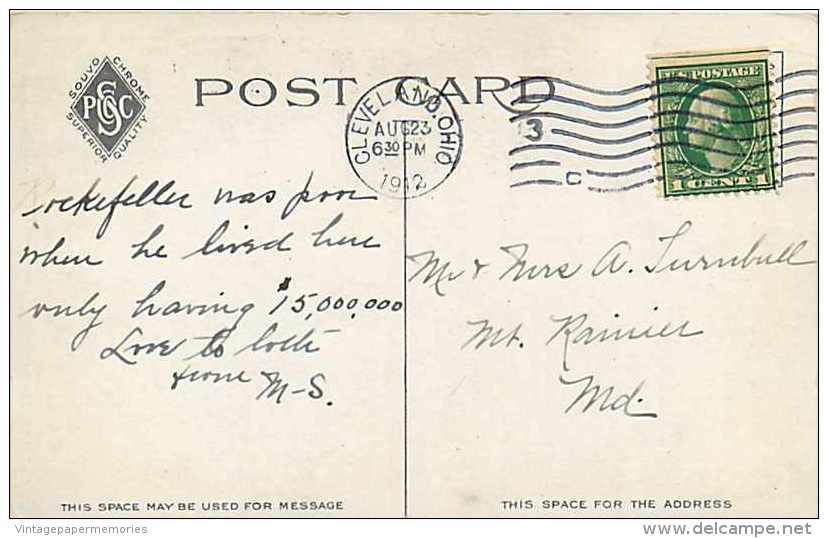 SOUVO CHROME
SUPERIOR QUALITY
POST CARD
CLEVELAND, OHIO
AUG 23
6 30 PM
1912
3
C
U.S. POSTAGE
1 CENT 1
Rockefeller was poor
when he lived here
only having $15,000,000
Love to both
from M-S.
Mr & Mrs A. Turnbull
Mt. Rainier
Md.
THIS SPACE MAY BE USED FOR MESSAGE
THIS SPACE FOR THE ADDRESS
Vintagepapermemories
delcampe.net